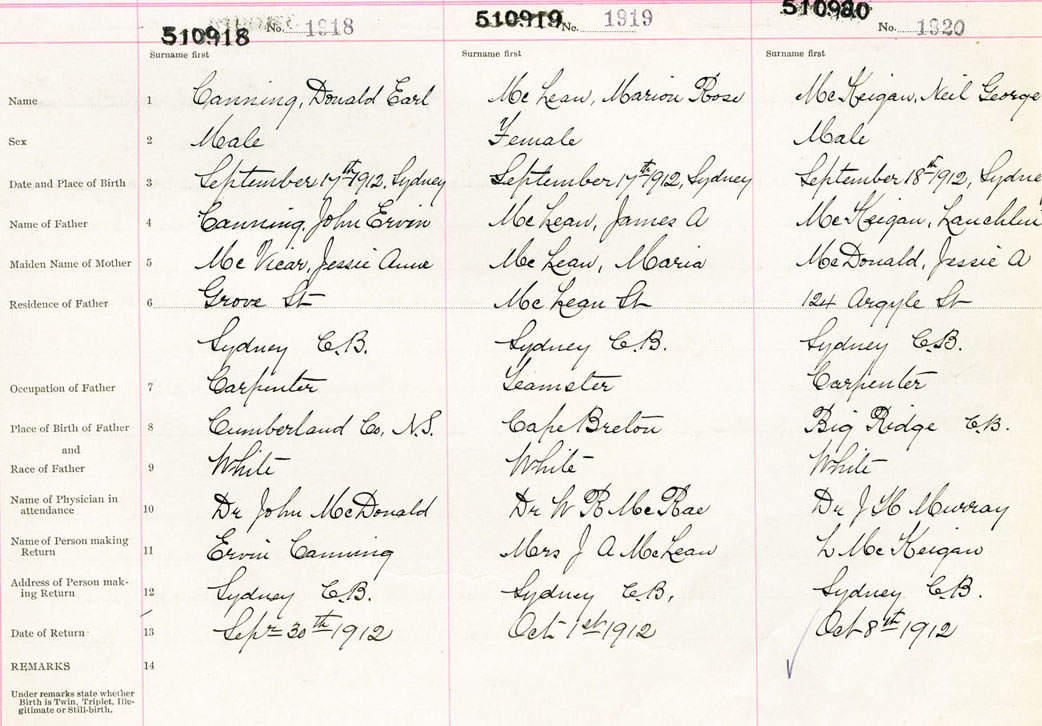 510918 No. 1918 510919 No. 1919 510920 No. 1920
Surname first Surname first Surname first
Name 1 Canning, Donald Earl Mc Lean, Marion Rose Mc Keigan, Neil George
Sex 2 Male Female Male
Date and Place of Birth 3 September 17th 1912, Sydney September 17th 1912, Sydney September 18th 1912, Sydne
Name of Father 4 Canning, John Ervin Mc Lean, James A Mc Keigan, Lauchlin
Maiden Name of Mother 5 Mc Vicar, Jessie Anne Mc Lean, Maria McDonald, Jessie A
Residence of Father 6 Grove St Mc Lean St 124 Argyle St
Sydney C.B. Sydney C.B. Sydney C.B.
Occupation of Father 7 Carpenter Teamster Carpenter
Place of Birth of Father 8 Cumberland Co, N.S. Cape Breton Big Ridge C.B.
and
Race of Father 9 White White White
Name of Physician in
attendance 10 Dr John McDonald Dr W R McRae Dr J K Murray
Name of Person making
Return 11 Ervin Canning Mrs J A McLean L Mc Keigan
Address of Person mak-
ing Return 12 Sydney C.B. Sydney C.B, Sydney C.B.
Date of Return 13 Sepr 30th 1912 Oct 1st 1912 Oct 8th 1912
REMARKS 14
Under remarks state whether
Birth is Twin, Triplet, Ille-
gitimate or Still-birth.